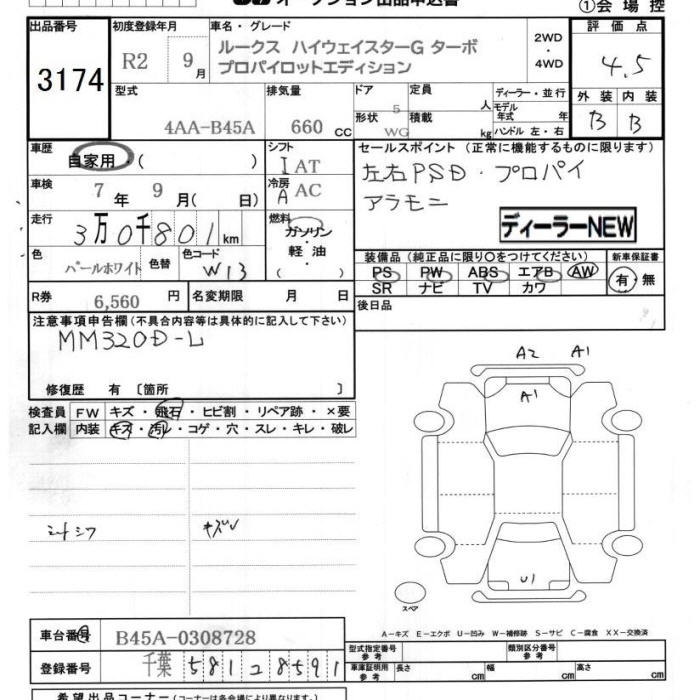 オークション出品申込書
①会場控
出品番号
3174
初度登録年月
R2 9月
車名・グレード
ルークス ハイウェイスターG ターボ
プロパイロットエディション
2WD
・
4WD
評価点
4.5
型式
4AA-B45A
排気量
660 CC
ドア
5
定員
人
形状
WG
積載
kg
ディーラー・並行
モデル年式 年
ハンドル 左・右
外装 内装
B B
車歴
自家用・( )
シフト
I AT
車検
7年9月( 日)
冷房
A AC
走行
3万0千801km
燃料
ガソリン
・
軽油
( )
色
パールホワイト
色替
色コード
W13
R券
6,560円
名変期限 月 日
セールスポイント (正常に機能するものに限ります)
左右PSD・プロパイ
アラモニ
ディーラーNEW
装備品 (純正品に限り○をつけてください)
PS PW ABS エアB AW
SR ナビ TV カワ
新車保証書
有・無
後日品
注意事項申告欄 (不具合内容等は具体的に記入して下さい)
MM320D-L
修復歴 有 〔箇所 〕
検査員
記入欄
FW キズ・飛石・ヒビ割・リペア跡・×要
内装 キズ・汚レ・コゲ・穴・スレ・キレ・破レ
シートシワ
キズレ
A2 A1
A1
U1
スペア
A-キズ E-エクボ U-凹み W-補修跡 S-サビ C-腐食 XX-交換済
車台番号
B45A-0308728
登録番号
千葉 581 こ 8591
型式指定番号
参考
類別区分番号
参考
車庫証明用
参考
長さ cm
幅 cm
高さ cm
希望出品コーナー (コーナーは各会場により異なります。)